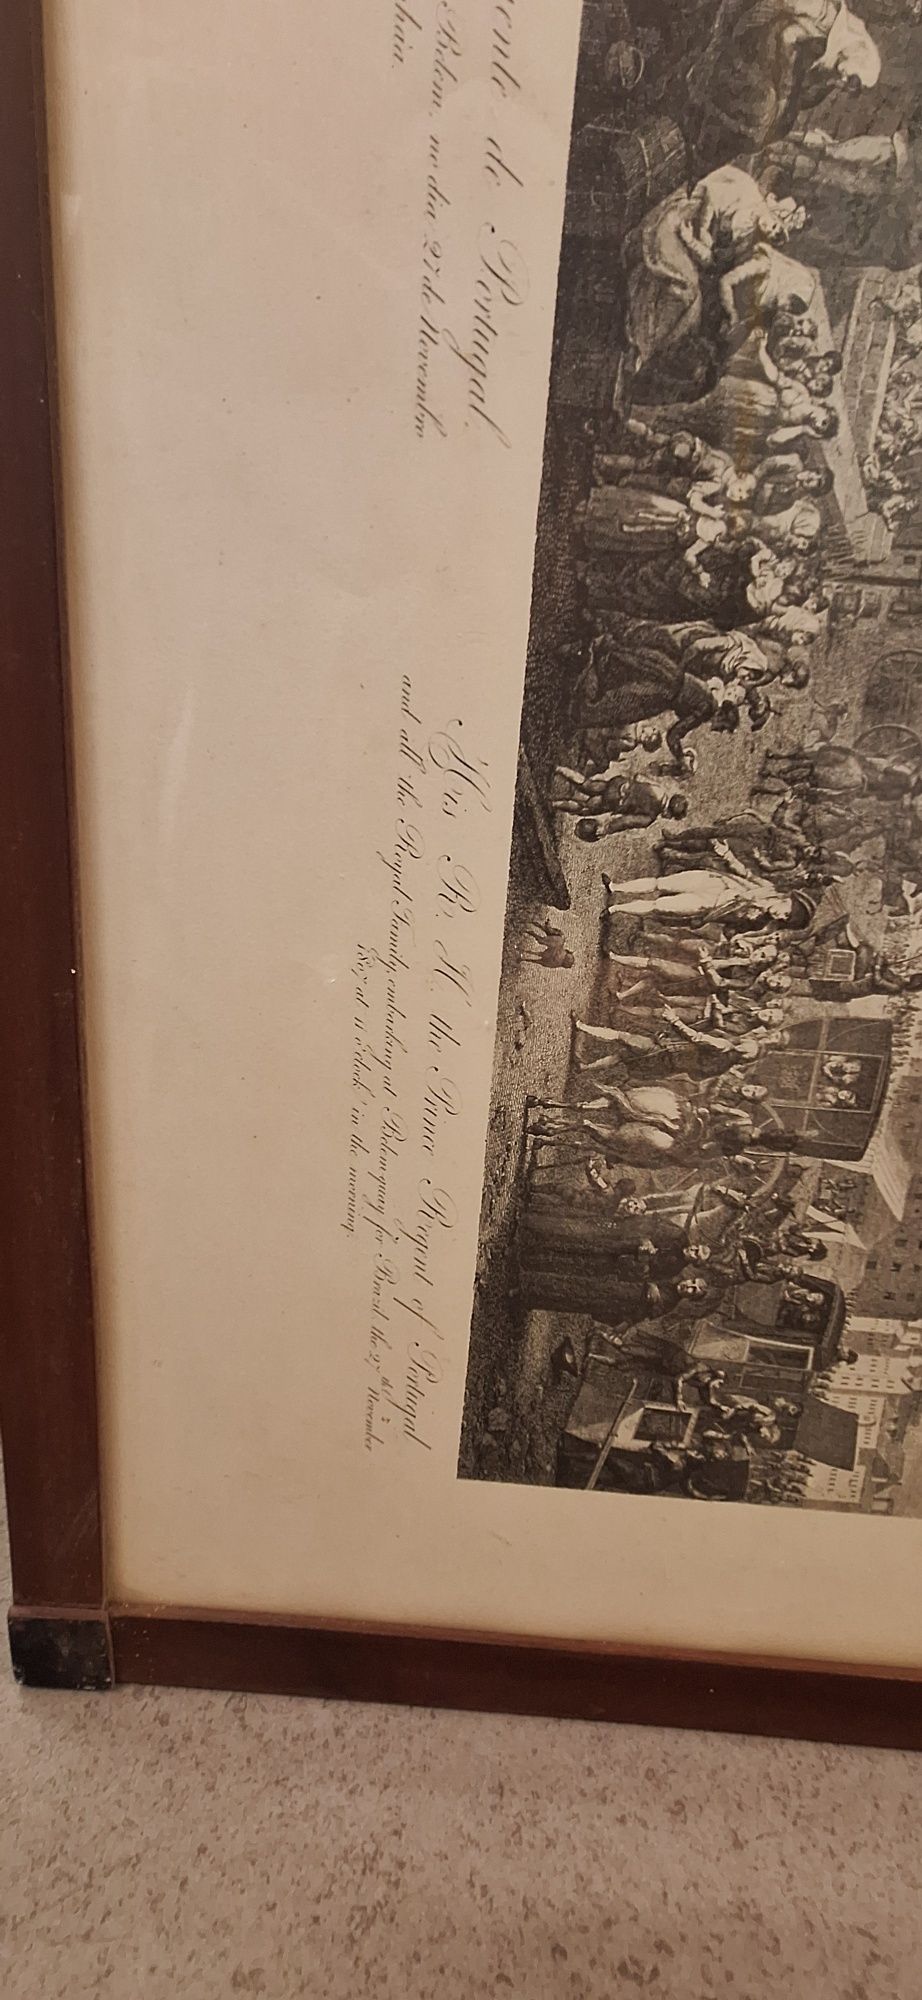 ente de Portugal.
Belem, no dia 27 de Novembro
His R. H. the Prince Regent of Portugal
and all the Royal Family, embarking at Belem quay for Brazil, the 27th of November
1807 at 11 o'clock in the morning.